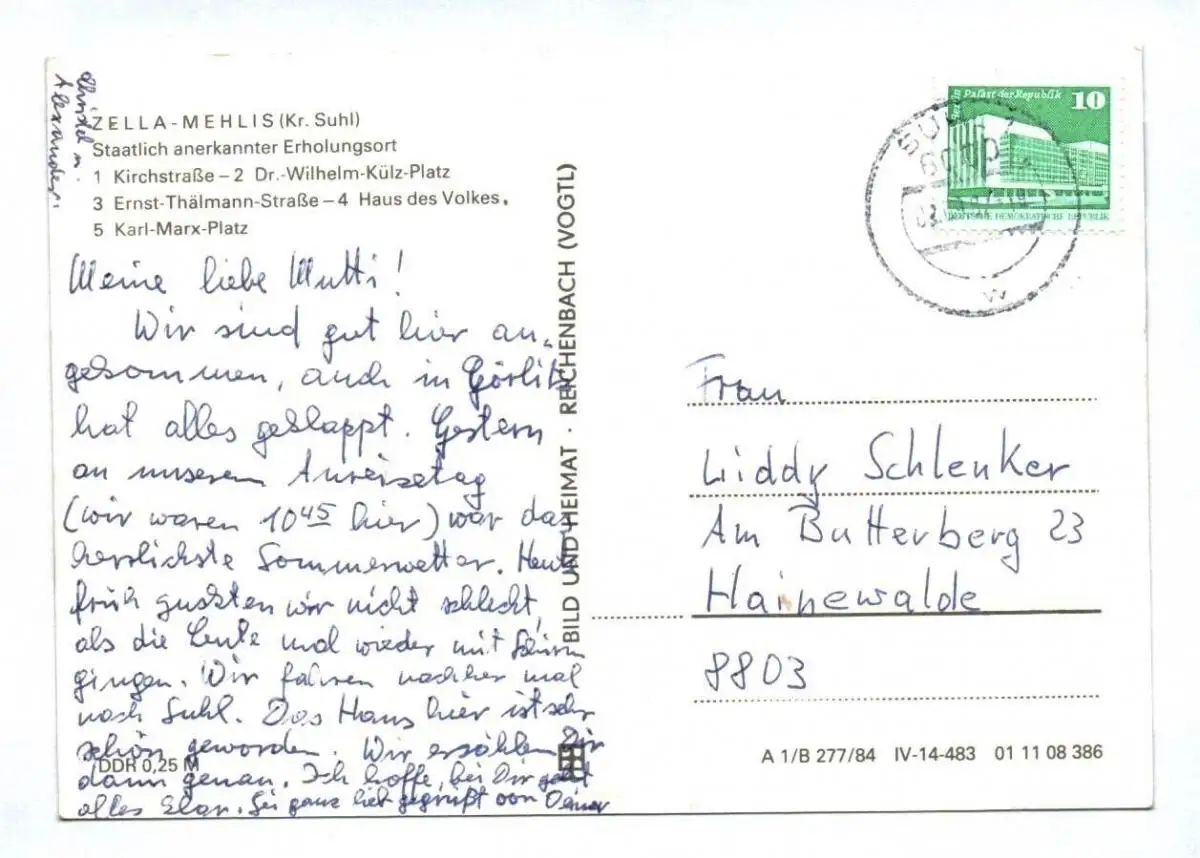 ZELLA-MEHLIS (Kr. Suhl)
Staatlich anerkannter Erholungsort
1 Kirchstraße – 2 Dr.-Wilhelm-Külz-Platz
3 Ernst-Thälmann-Straße – 4 Haus des Volkes
5 Karl-Marx-Platz
Meine liebe Mutti!
Wir sind gut hier an-
gekommen, auch in Görlitz
hat alles geklappt. Gestern
an unserem Anreisetag
(wir waren 10 45 hier) war das
herrlichste Sommerwetter. Heute
früh guckten wir nicht schlecht,
als die Leute mal wieder mit Schirm
gingen. Wir fahren nachher mal
nach Suhl. Das Haus hier ist sehr
schön geworden. Wir erzählen Dir
dann genau. Ich hoffe, bei Dir geht
alles klar. Sei ganz lieb gegrüßt von Deiner
Christel u.
Alexander.
DDR 0,25 M
BILD UND HEIMAT · REICHENBACH (VOGTL)
Berlin Palast der Republik 10
DEUTSCHE DEMOKRATISCHE REPUBLIK
SUHL 1
w
Frau
Liddy Schlenker
Am Butterberg 23
Hainewalde
8803
A 1/B 277/84 IV-14-483 01 11 08 386